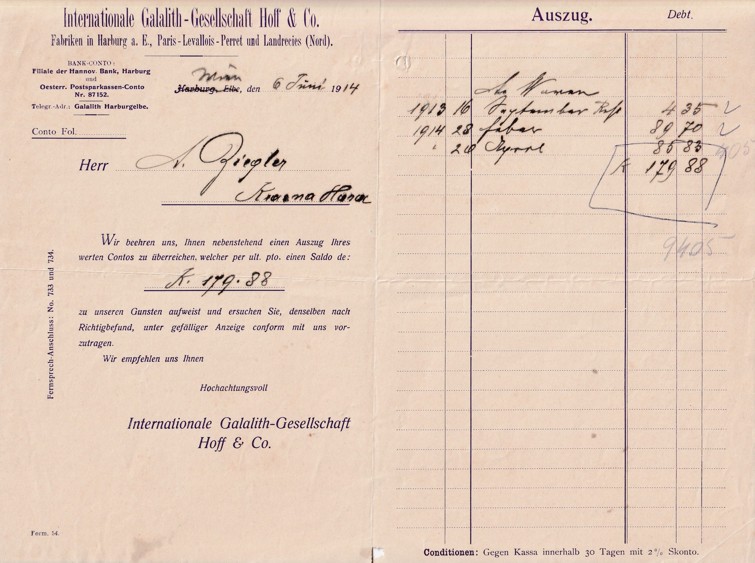 Internationale Galalith-Gesellschaft Hoff & Co.
Fabriken in Harburg a. E., Paris-Levallois-Perret und Landrecies (Nord).
BANK-CONTO:
Filiale der Hannov. Bank, Harburg
und
Oesterr. Postsparkassen-Conto
Nr. 87152.
Telegr.-Adr.: Galalith Harburgelbe.
Wien
Harburg, Elbe, den 6 Juni 1914
Conto Fol.
Herr A. Ziegler
Krasna Hora
Wir beehren uns, Ihnen nebenstehend einen Auszug Ihres
werten Contos zu überreichen, welcher per ult. pto. einen Saldo de:
K. 179.88
zu unseren Gunsten aufweist und ersuchen Sie, denselben nach
Richtigbefund, unter gefälliger Anzeige conform mit uns vor-
zutragen.
Wir empfehlen uns Ihnen
Hochachtungsvoll
Internationale Galalith-Gesellschaft
Hoff & Co.
Fernsprech-Anschluss: No. 733 und 734.
Form. 34.
Auszug. Debt.
An Waren
1913 16 September Rest 4 35
1914 28 feber 89 70
" 20 April 85 83
K 179 88
9405
Conditionen: Gegen Kassa innerhalb 30 Tagen mit 2% Skonto.